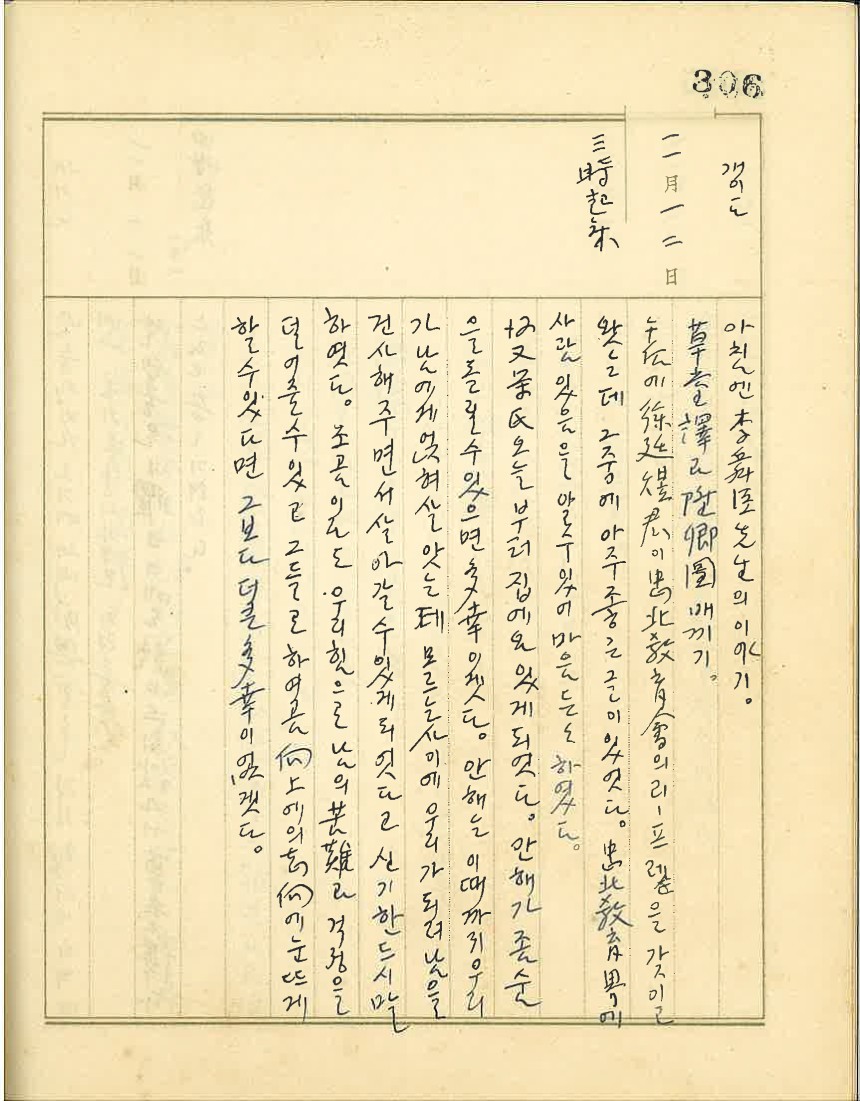 306
개이도
一一月一二日
三時起床
아침엔 李舜臣先生의 이야기。
草堂選과 陞卿圖 배끼기。
午后에 徐廷煜君이 忠北敎育會의 리-프렡을 갖이고
왔는데 그중에 아주 좋은 글이 있엇다。 忠北敎育界에
사람 있음을 알수있어 마음 든든 하였다。
氏 오늘 부터 집에 와 있게 되엿다。 안해가 좀 숨
을 돌릴수 있으면 多幸이겟다。 안해는 이때까지 우리
가 남에게 얹혀 살앗는데 모르는 사이에 우리가 되려 남을
건사해 주면서 살아갈 수 있게 되엿다고 신기한 드시 말
하엿다。 조곰이라도 우리 힘으로 남의 苦難과 걱정을
덜어 줄 수 있고 그들로 하여곰 向上에의 志向에 눈 뜨게
할 수 있다면 그보다 더 큰 多幸이 없겟다。